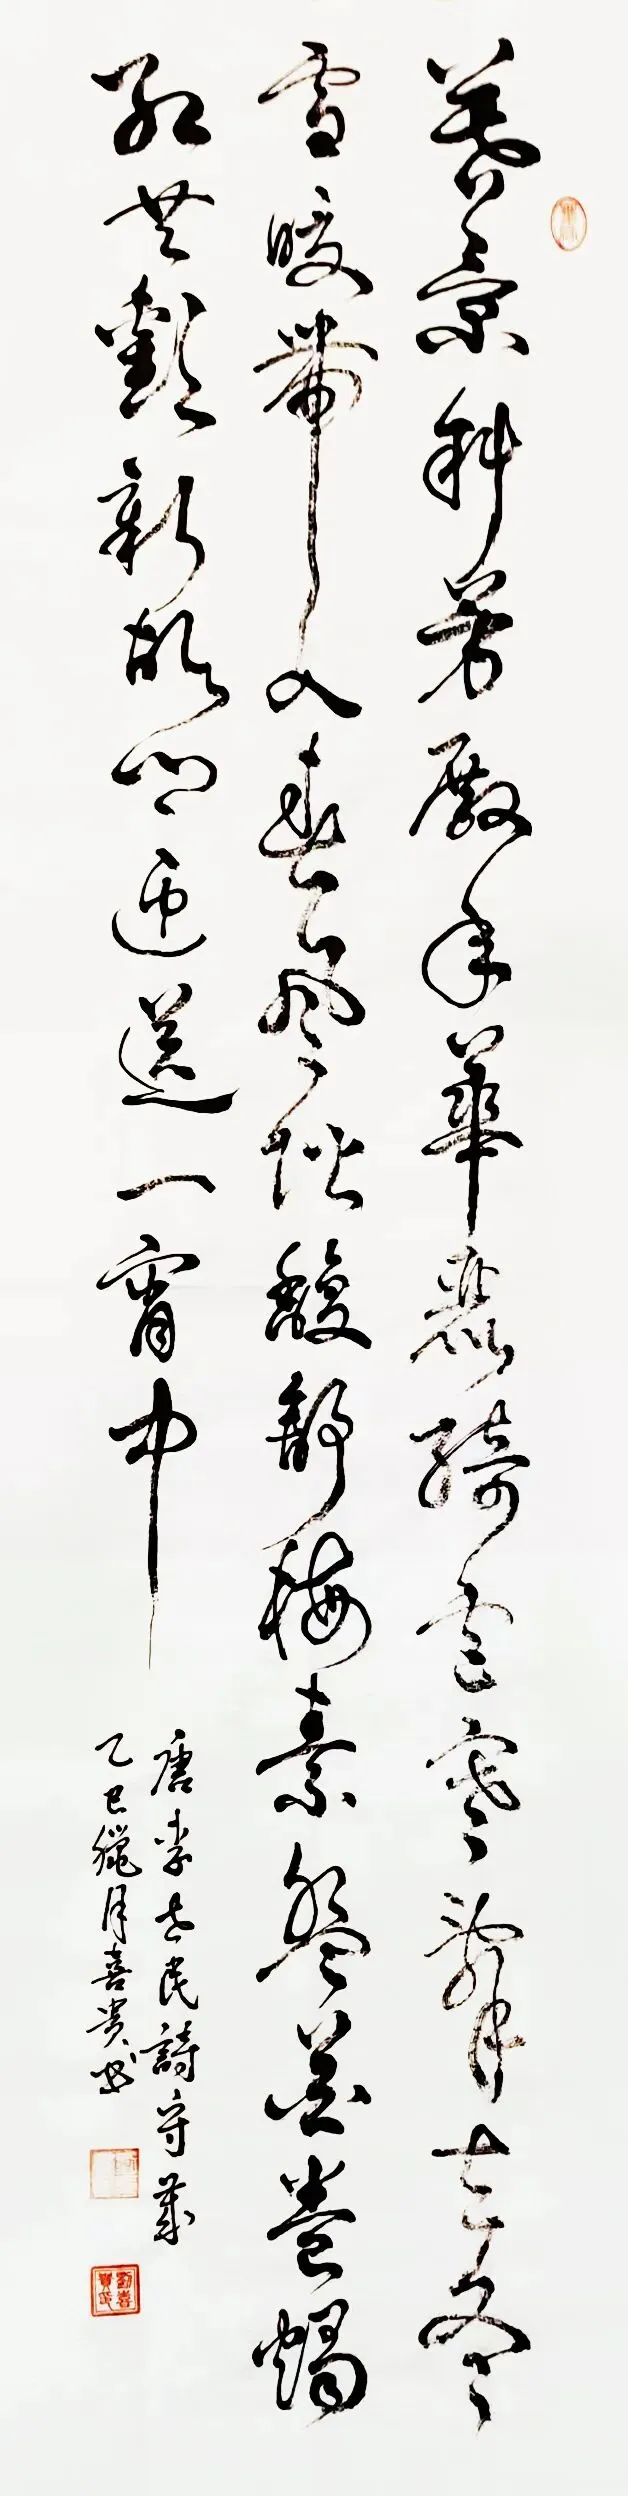 暮景斜芳殿年華麗綺宮寒辭去冬
雪暖帶入春風階馥舒梅素盤花卷燭
紅共歡新故歲迎送一宵中
唐李世民詩守歲
乙巳臘月喜貴書